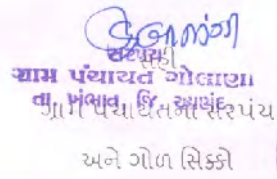 સરપંચ
સહી
ગ્રામ પંચાયત ગોલાણા
તા. ખંભાત જિ. આણંદ
ગ્રામ પંચાયતના સરપંચ
અને ગોળ સિક્કો